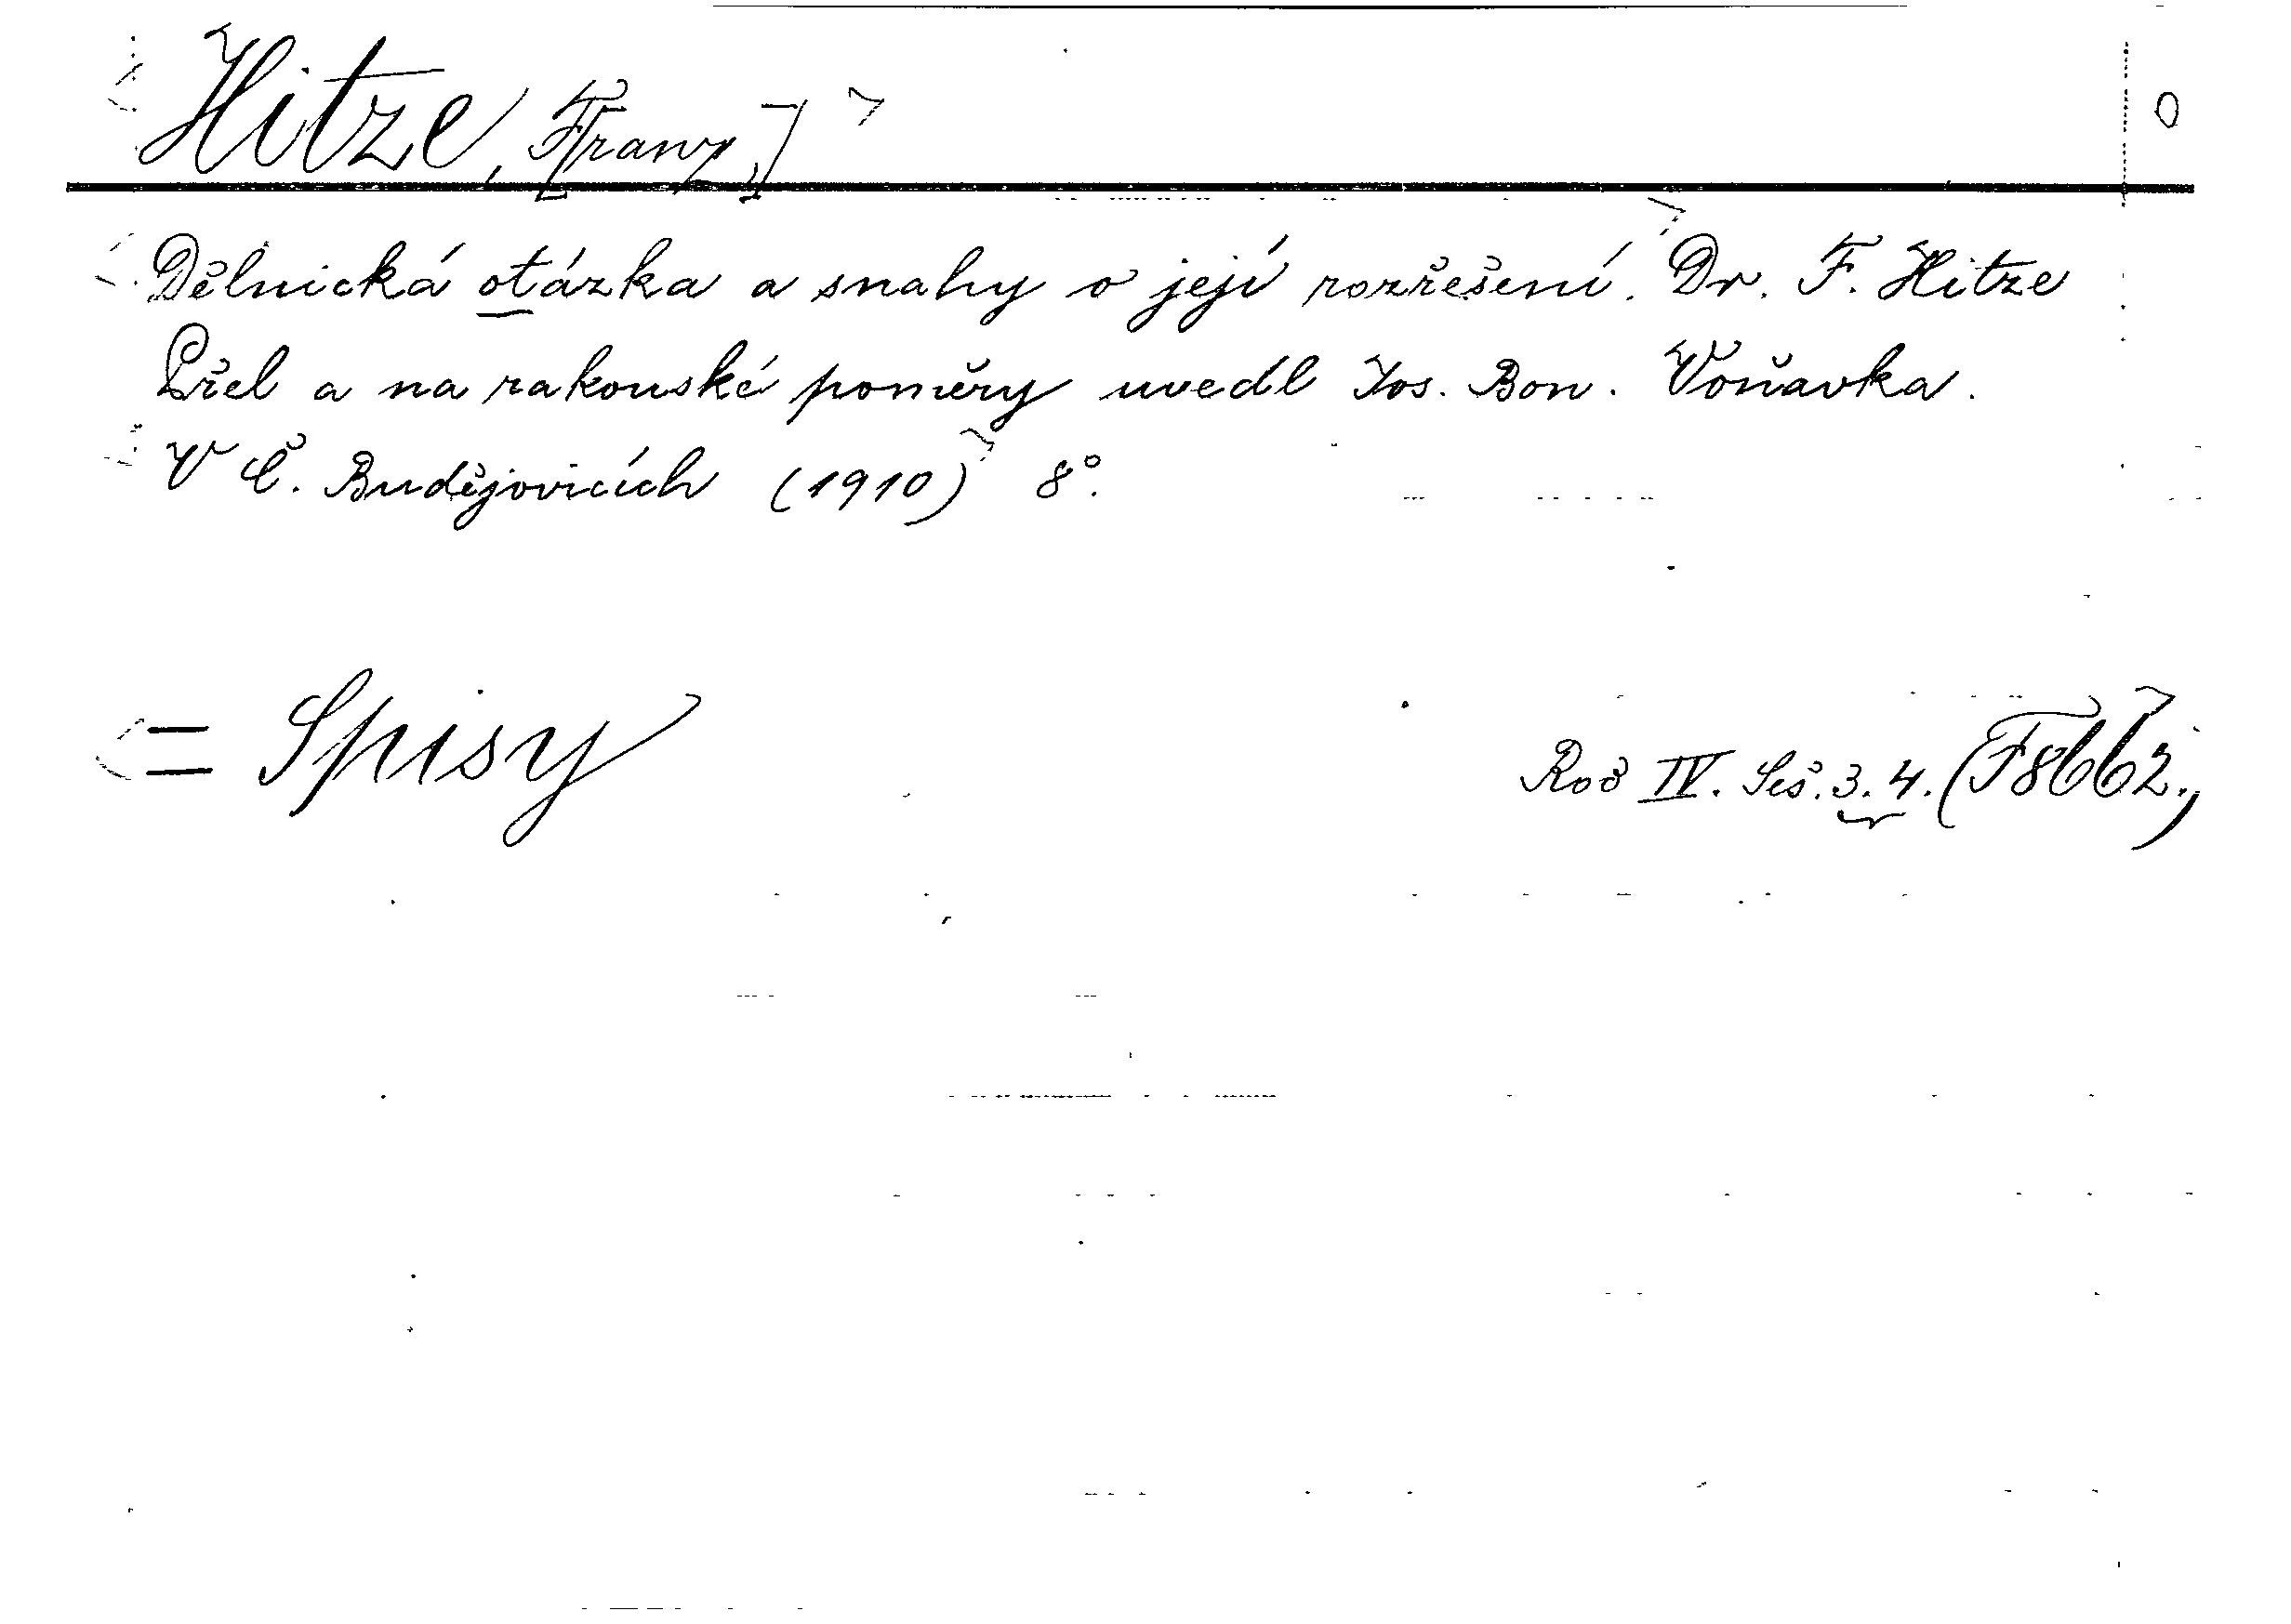 Hitze, F[ranz,]
O
Dělnická otázka a snahy o její rozřešení. Dr. F. Hitze
Přel a na rakouské poměry uvedl Jos. Bon. Voňavka.
V Č. Budějovicích (1910) 8°.
= Spisy
Roč IV. Seš. 3. 4. (F8662.)